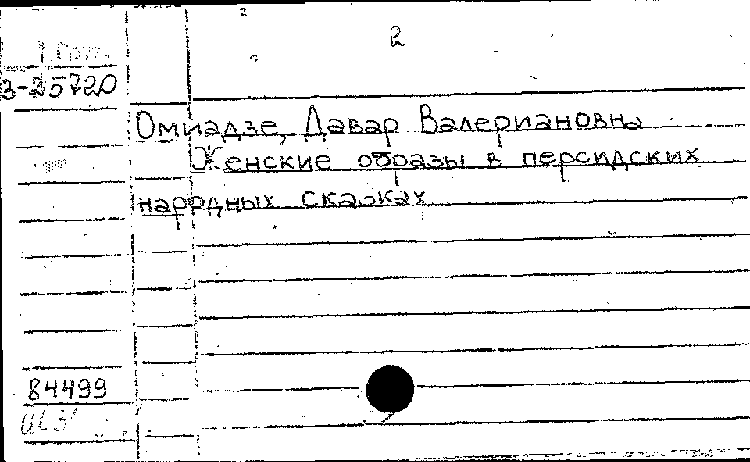 2
3-25720
Омиадзе, Давар Валериановна
Женские образы в персидских
народных сказках
84499